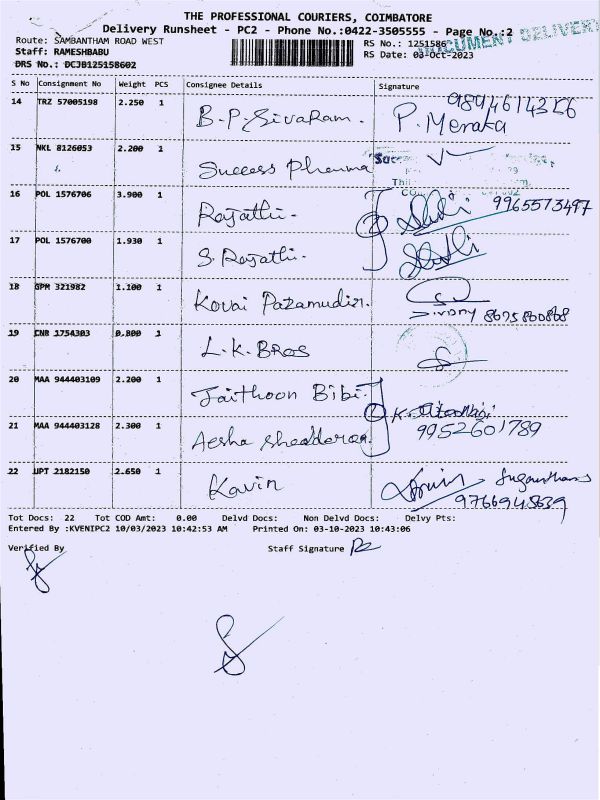 THE PROFESSIONAL COURIERS, COIMBATORE
Delivery Runsheet - PC2 - Phone No.:0422-3505555 - Page No.:2
DOCUMENT DELIVERY
Route: SAMBANTHAM ROAD WEST RS No.: 1251586
Staff: RAMESHBABU RS Date: 03-Oct-2023
DRS No.: DCJB125158602
S No Consignment No Weight PCS Consignee Details Signature
14 TRZ 57005198 2.250 1 B.P.Sivaram. P. Menaka
15 NKL 8126053 2.200 1 Success Pharma
16 POL 1576706 3.900 1 Rajathi. 9965573497
17 POL 1576700 1.930 1 S. Rajathi.
18 GPM 321982 1.100 1 Kovai Pazamudir. 8675860868
19 CNR 1754303 0.800 1 L.K.Bros
20 MAA 944403109 2.200 1 Jaithoon Bibi.
21 MAA 944403128 2.300 1 Aesha 9952601789
22 JPT 2182150 2.650 1 Kavin
Tot Docs: 22 Tot COD Amt: 0.00 Delvd Docs: Non Delvd Docs: Delvy Pts:
Entered By :KVENIPC2 10/03/2023 10:42:53 AM Printed On: 03-10-2023 10:43:06
Verified By Staff Signature